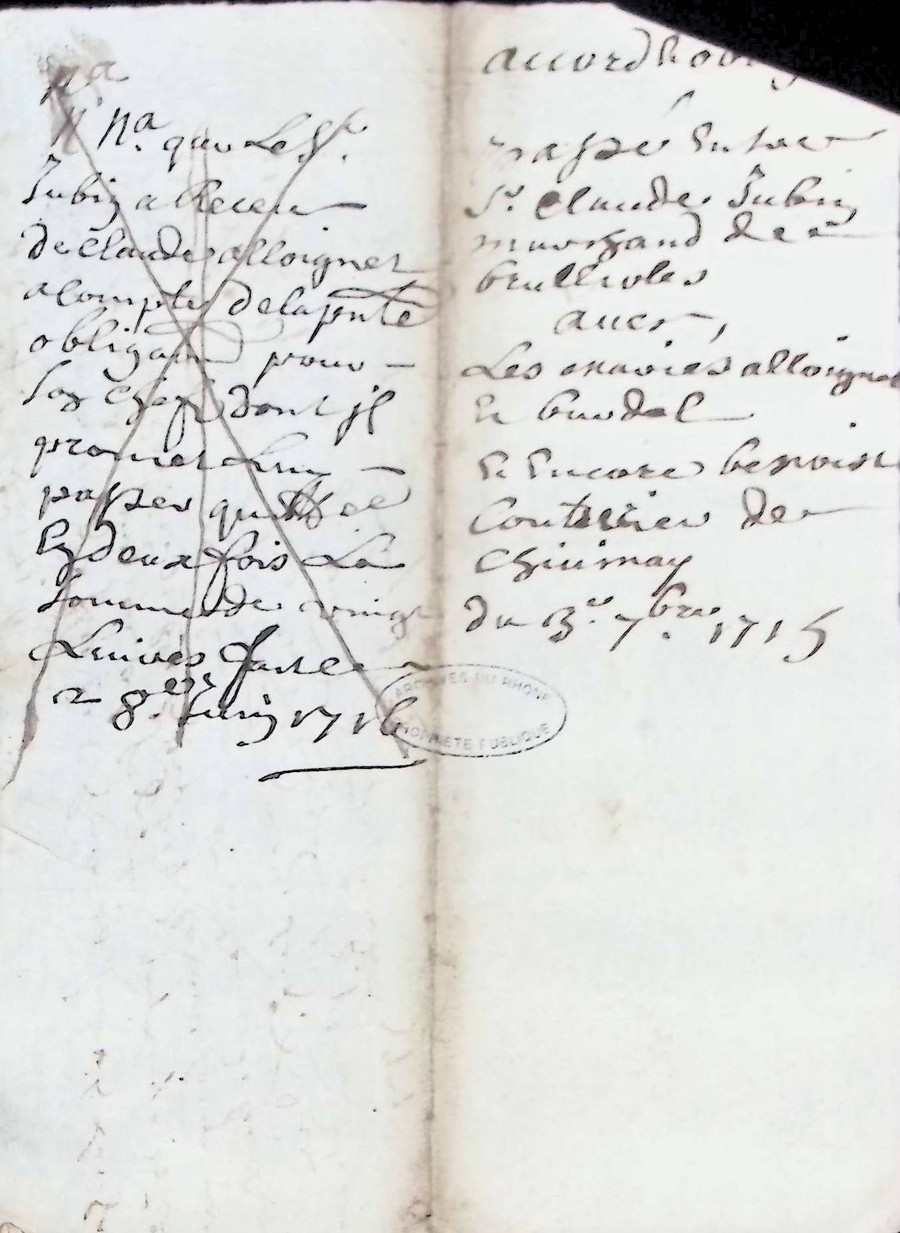 na
N na. que Le Sr.
Jubin a Receu
de Claude alloignet
a Compte de la pnte
obligaon pour
son chef dont il
promet Luy
passer quittce
En deux fois La
somme de vingt
Livres faict ce
8e. Juin 1716
accord
passé Entre
Sr. Claude Jubin
marchand de
brullioles
avec,
Les mariés alloignet
Et burdel
Et Encore benoist
Couturier de
Chiimay
du 3e. 7bre 1715
ARCHIVES DU RHONE
PROPRIETE PUBLIQUE